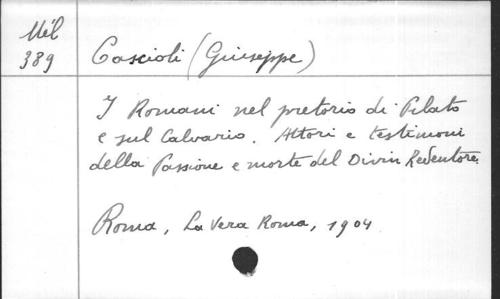 Mil
389
Cascioli (Giuseppe)
I Romani nel pretorio di Pilato
e sul Calvario. Attori e testimoni
della Passione e morte del Divin Redentore.
Roma, La Vera Roma, 1904